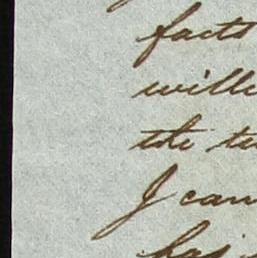 facts
will
the tu
I can
has